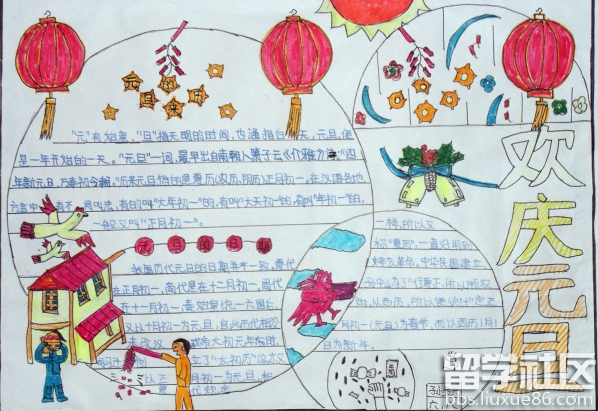 元旦来历
"元"有始意，"旦"指天明的时间，也通指白天，元旦，便
是一年开始的一天。"元旦"一词，最早出自南朝人萧子云《介雅》诗："四
新元旦，万寿初今朝。"历来元旦指的是夏历(农历、阴历)正月初一。在汉语各地
方言中有不同叫法，有的叫"大年初一"的，有叫"大天初一"的，有叫"年初一"的，
一般又叫"正月初一"。
元旦的日期
我国历代元旦的日期并不一致。夏代
在正月初一，商代是在十二月初一，周代
在十一月初一，秦始皇统一六国后，
又以十月初一为元旦，自此历代相沿
未改。汉
一样，所以又
一直好用到
中华民国建立
孙中山为了"行夏正，所以顺农
时，从西历，所以便统计"定正
月初一(元旦)为春节，而以西历1月1
日为新年。
欢庆元旦
留学社区
bbs.liuxue86.com